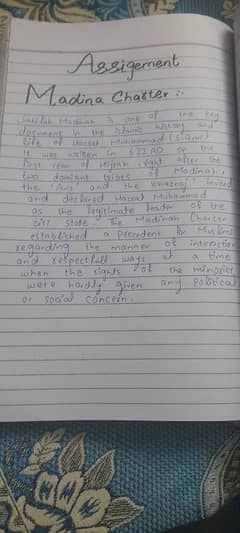 Assigement
Madina Charter :-
Sahifah Madinah is one of the key
document in the islamic history and
life of Hazrat Muhammad (S.A.W)
It was writen in 622 AD or the
first year of Hijrah, right after the
two domiant tribes of Madinah,
the 'Aus' and the Khazraj' invited
and declared Hazrat Muhammad
as the legitimate leader of the
city state. The Madinah Charter
established a precedent for Muslims
regarding the manner of interaction
and respectfull ways at a time
when the rights of the minorier
were hardly given any political
or social concern.